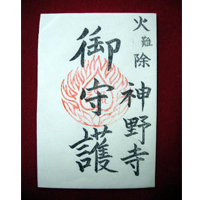 火難除
神野寺
御守護